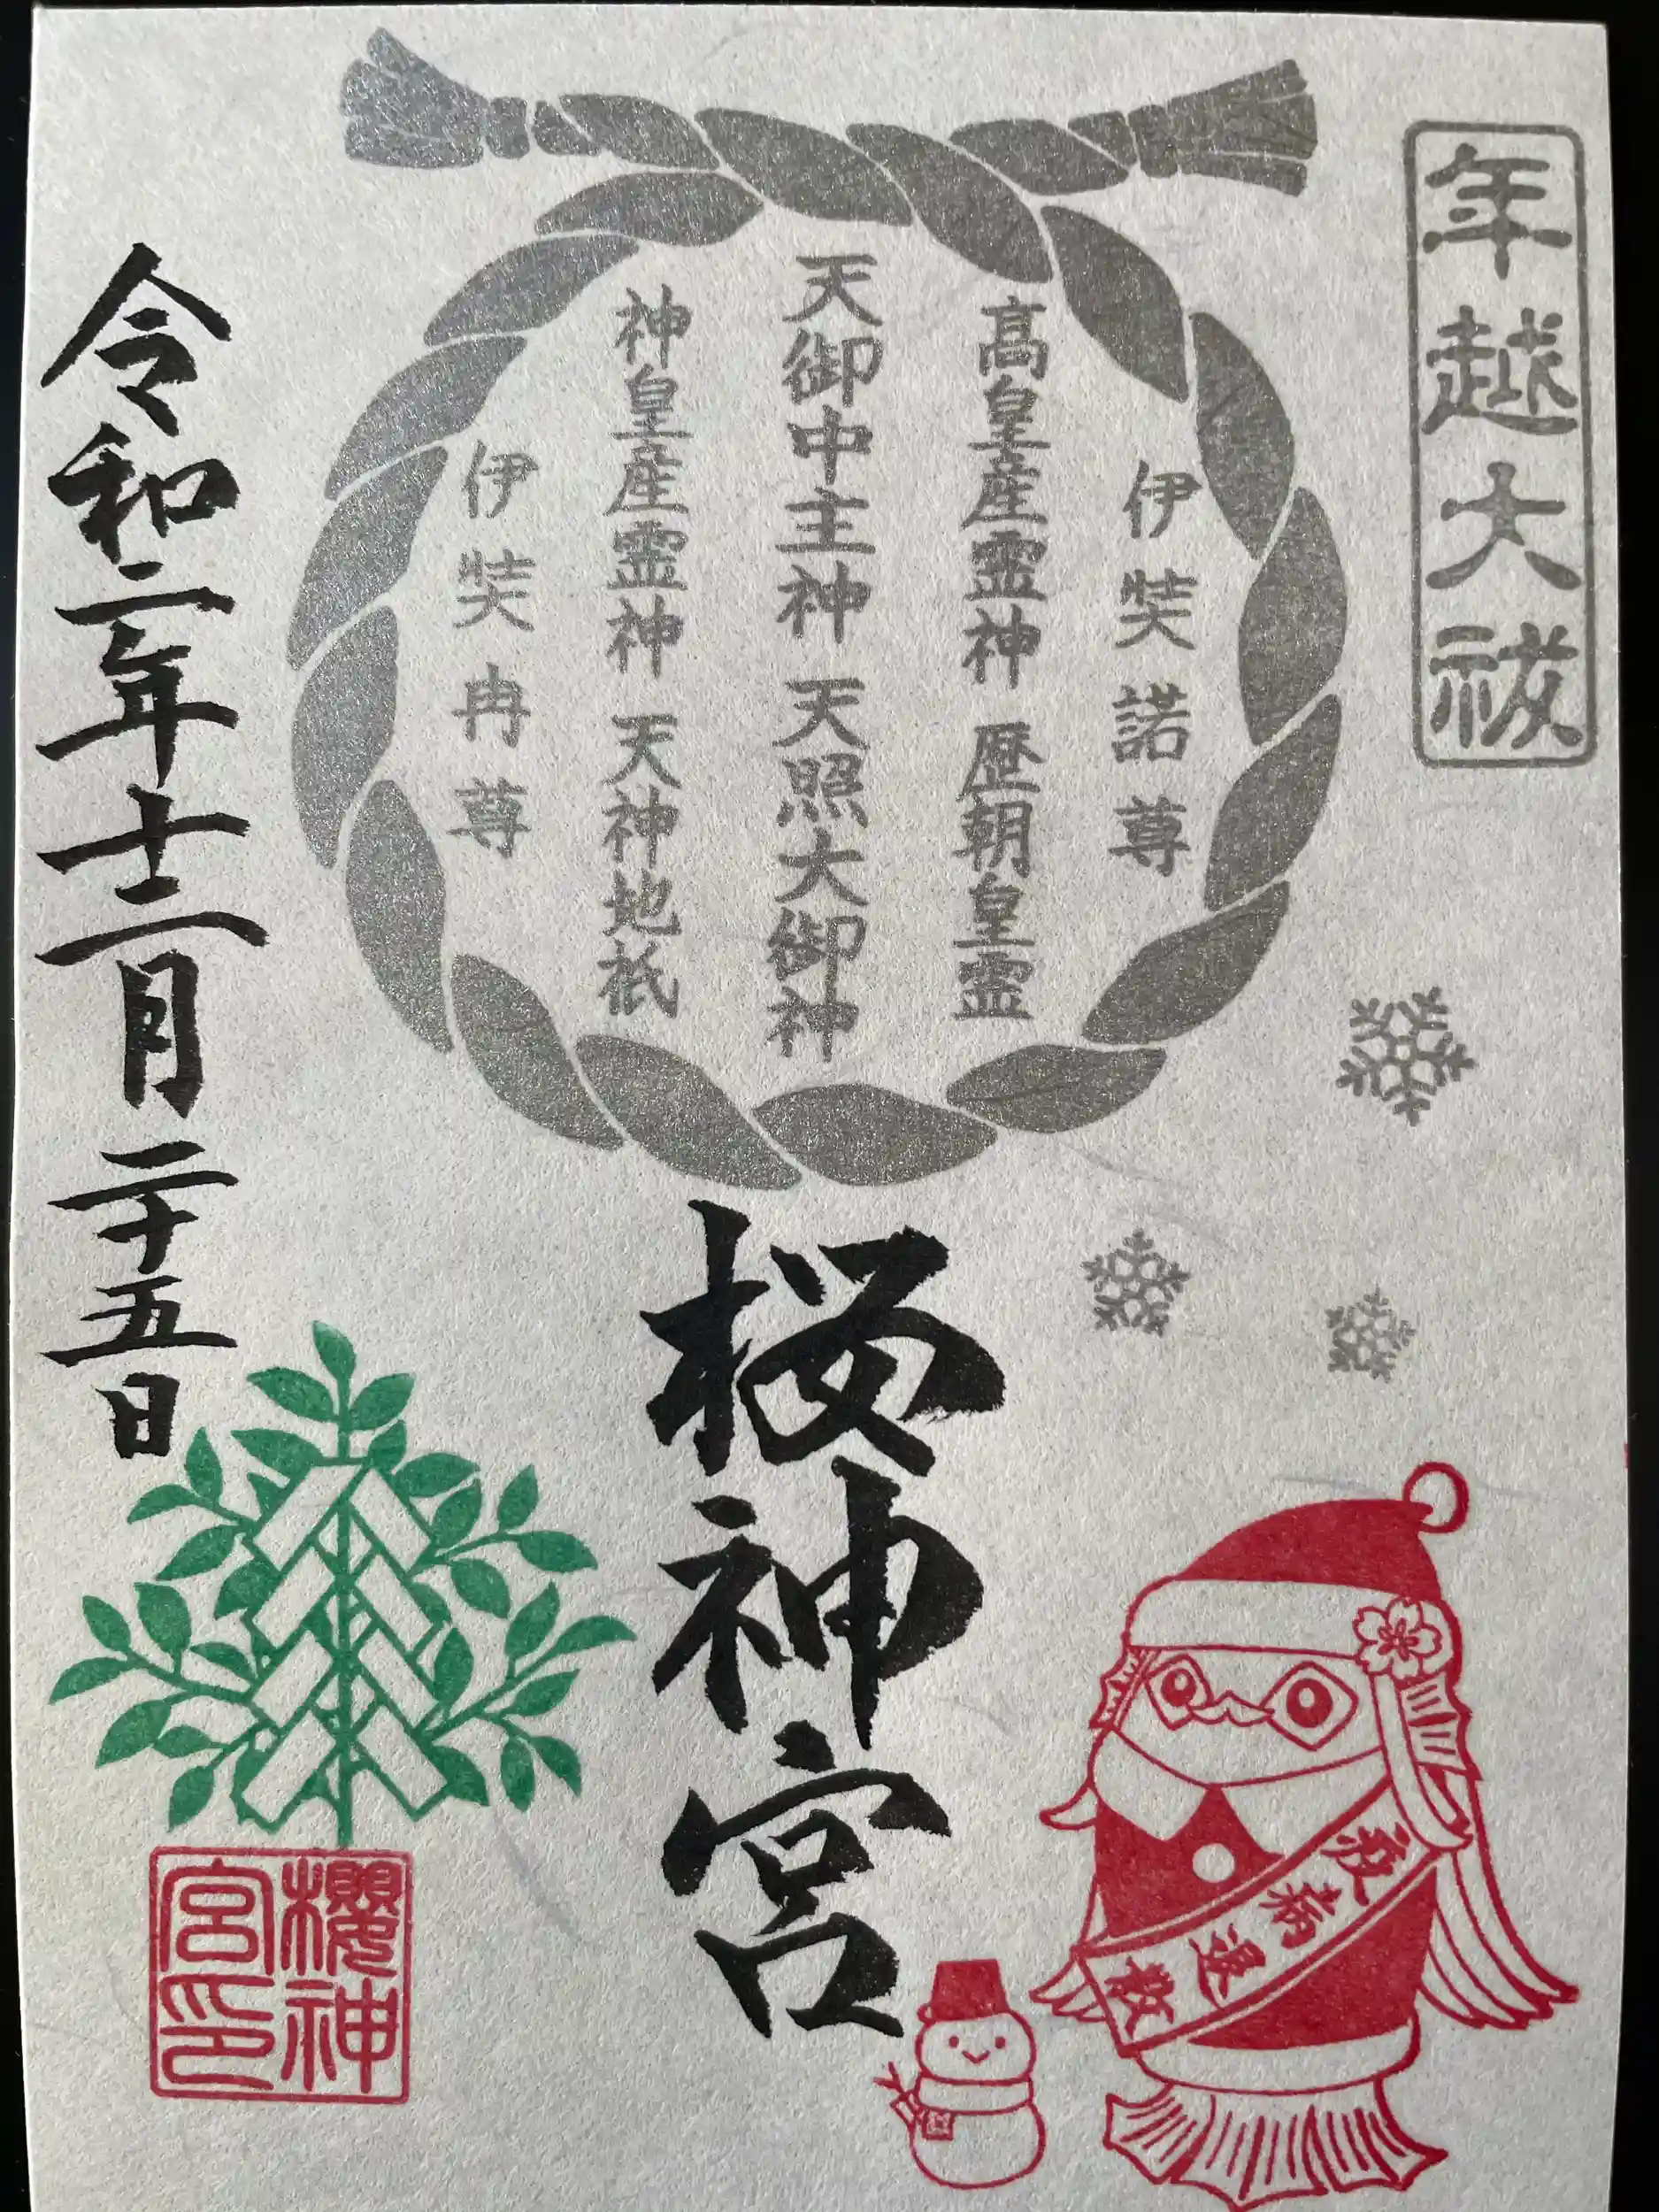 年越大祓
伊弉諾尊
高皇産霊神 歴朝皇霊
天御中主神 天照大御神
神皇産霊神 天神地祇
伊弉冉尊
桜神宮
令和二年十二月二十五日
櫻神宮印
疫病退散